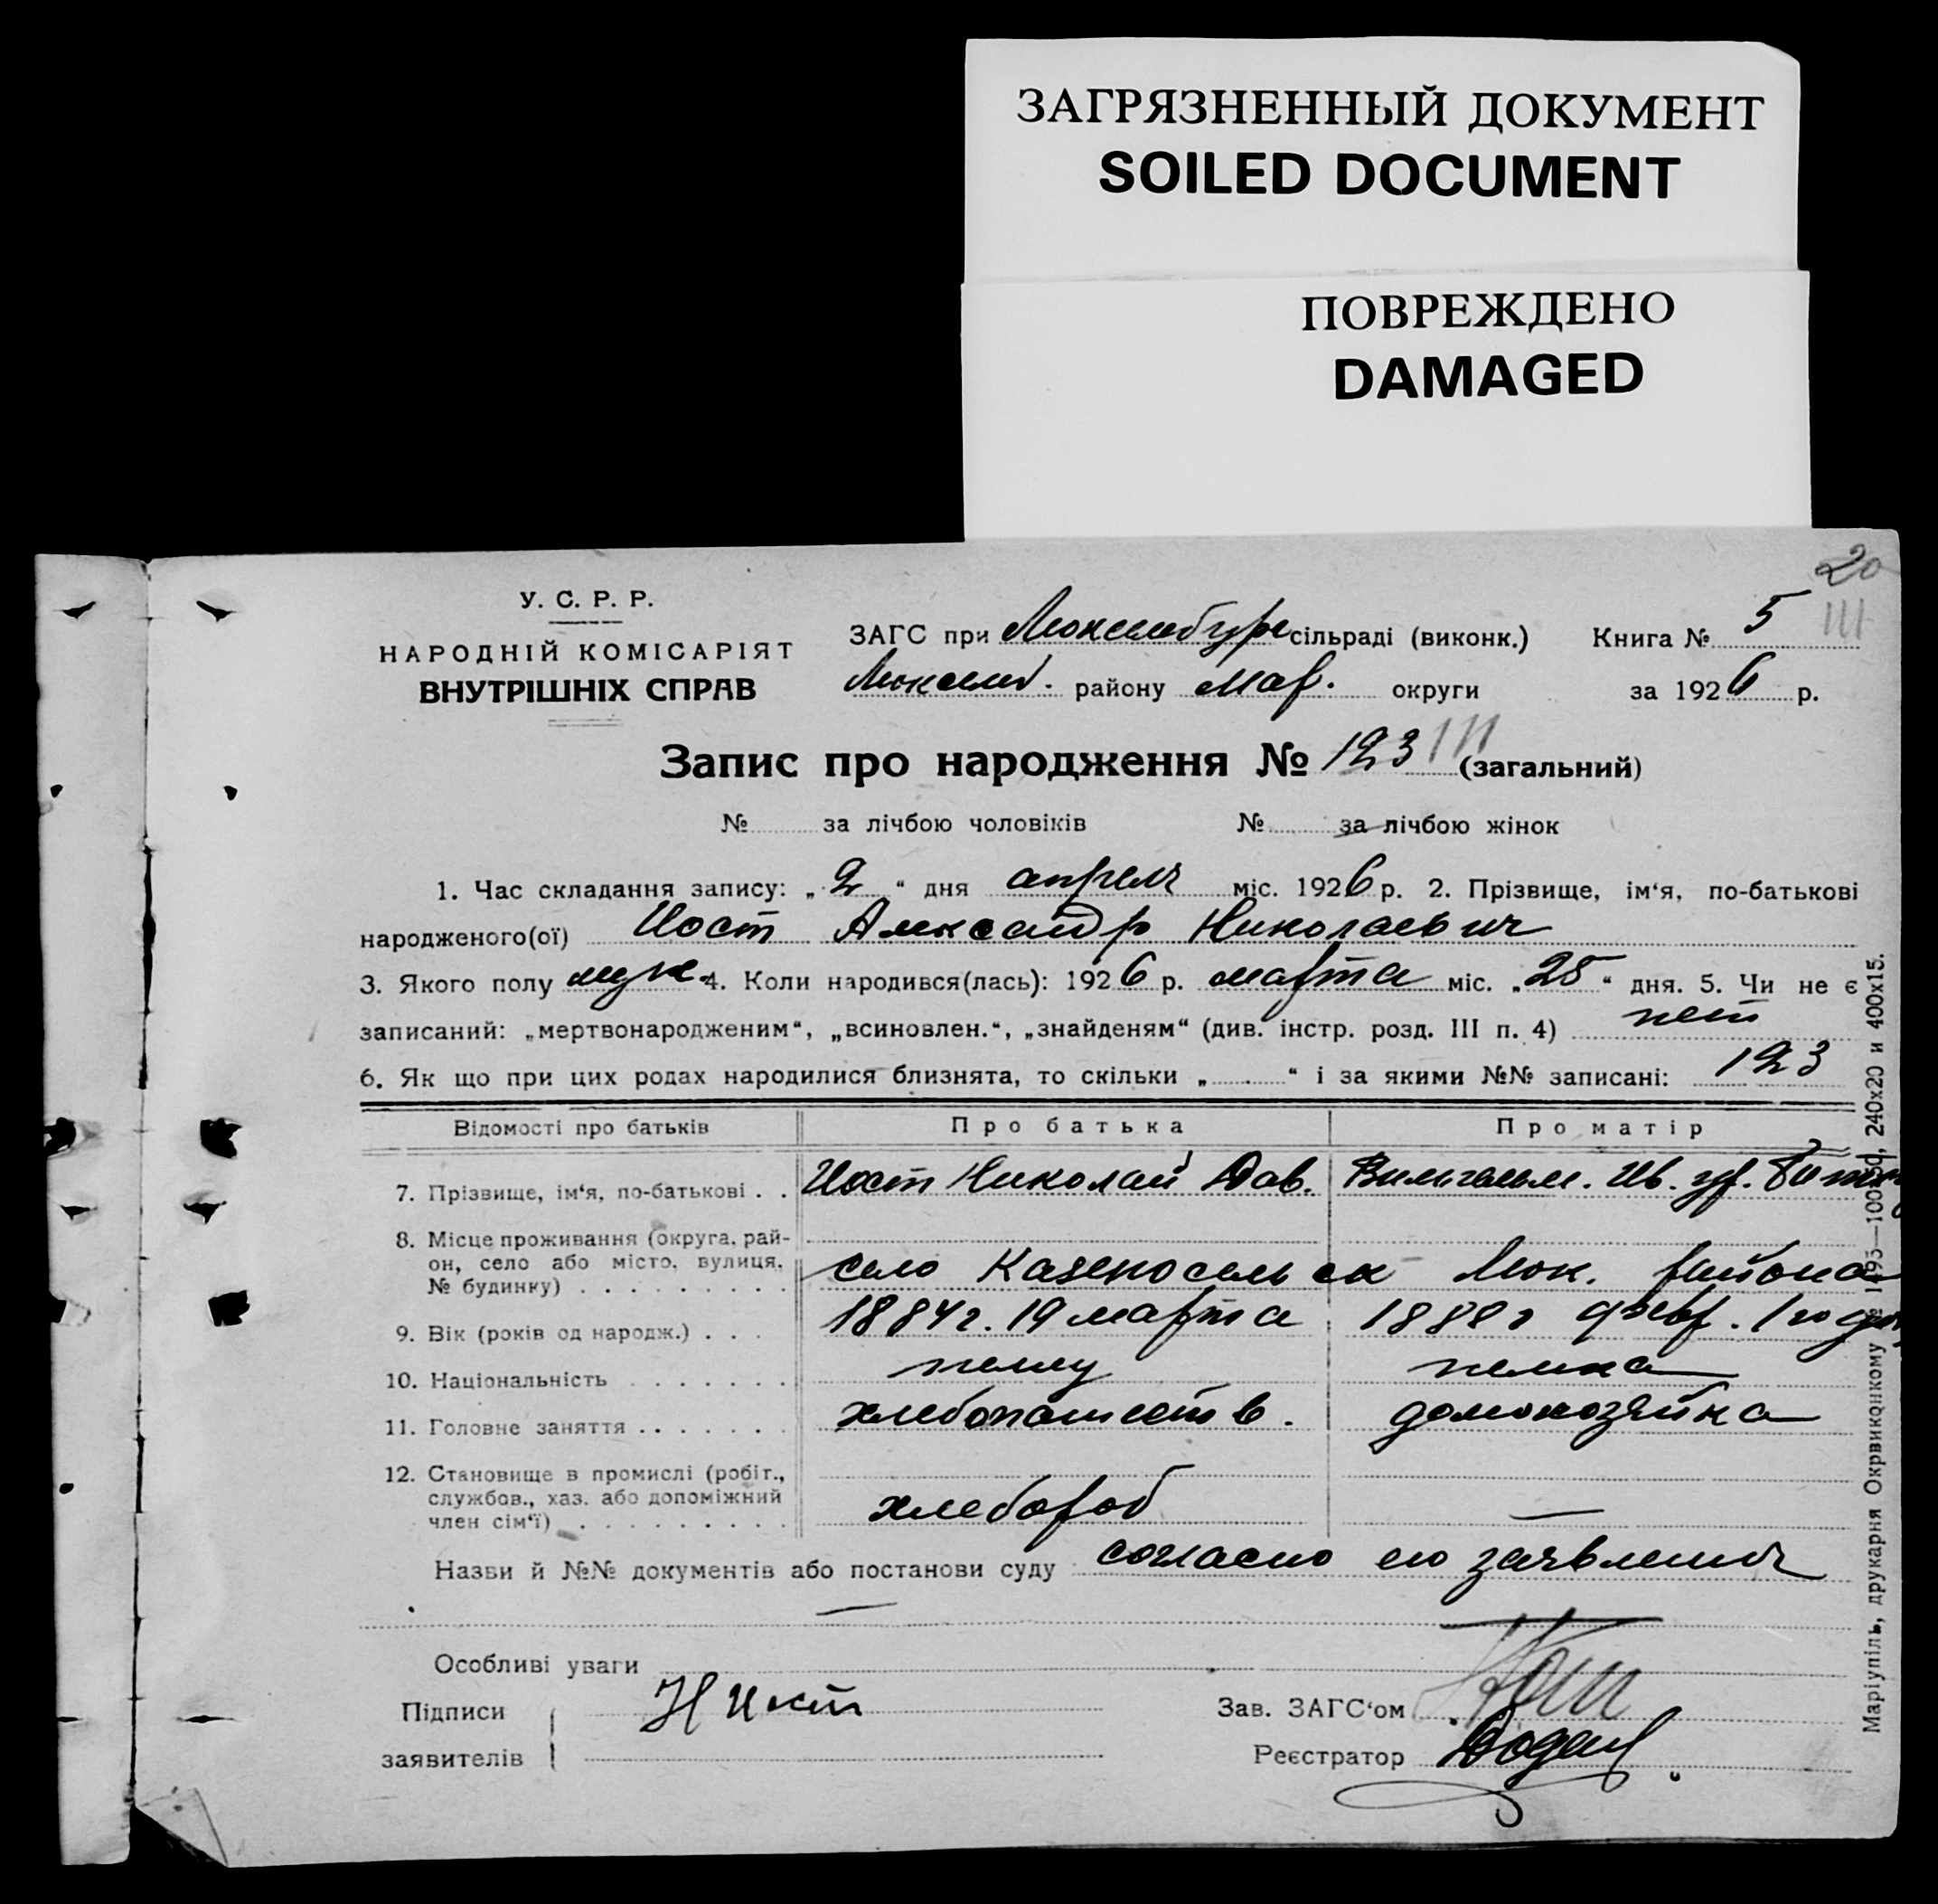 ЗАГРЯЗНЕННЫЙ ДОКУМЕНТ
SOILED DOCUMENT
ПОВРЕЖДЕНО
DAMAGED
20
У. С. Р. Р.
НАРОДНІЙ КОМІСАРІЯТ
ВНУТРІШНІХ СПРАВ
ЗАГС при Люксембург сільраді (виконк.) Книга № 5 III
Люксемб. району Мар. округи за 1926 р.
Запис про народження № 123 III (загальний)
№ за лічбою чоловіків № за лічбою жінок
1. Час складання запису: „2“ дня апреля міс. 1926 р. 2. Прізвище, ім‘я, по-батькові
народженого(ої) Иост Александр Николаевич
3. Якого полу муж. 4. Коли народився(лась): 1926 р. марта міс. „25“ дня. 5. Чи не є
записаний: „мертвонародженим“, „всиновлен.“, „знайденям“ (див. інстр. розд. III п. 4) нет
6. Як що при цих родах народилися близнята, то скільки „ “ і за якими №№ записані: 123
Відомості про батьків Про батька Про матір
7. Прізвище, ім‘я, по-батькові . . Иост Николай Дав. Вильгельм. Ив. ур.
8. Місце проживання (округа, рай-
он, село або місто, вулиця, село Казеносельск Люк. района
№ будинку)
9. Вік (років од народж.) . . . 1884 г. 19 марта 1888 г февр. 1
10. Національність немец немка
11. Головне заняття хлебопашеств. домохозяйка
12. Становище в промислі (робіт.,
службов., хаз. або допоміжний хлебороб —
член сім‘ї)
Назви й №№ документів або постанови суду согласно его заявления
—
Особливі уваги
Підписи Н Иост Зав. ЗАГС‘ом
заявителів Реєстратор
Маріупіль, друкарня Окрвиконкому 240х20 и 400х15.